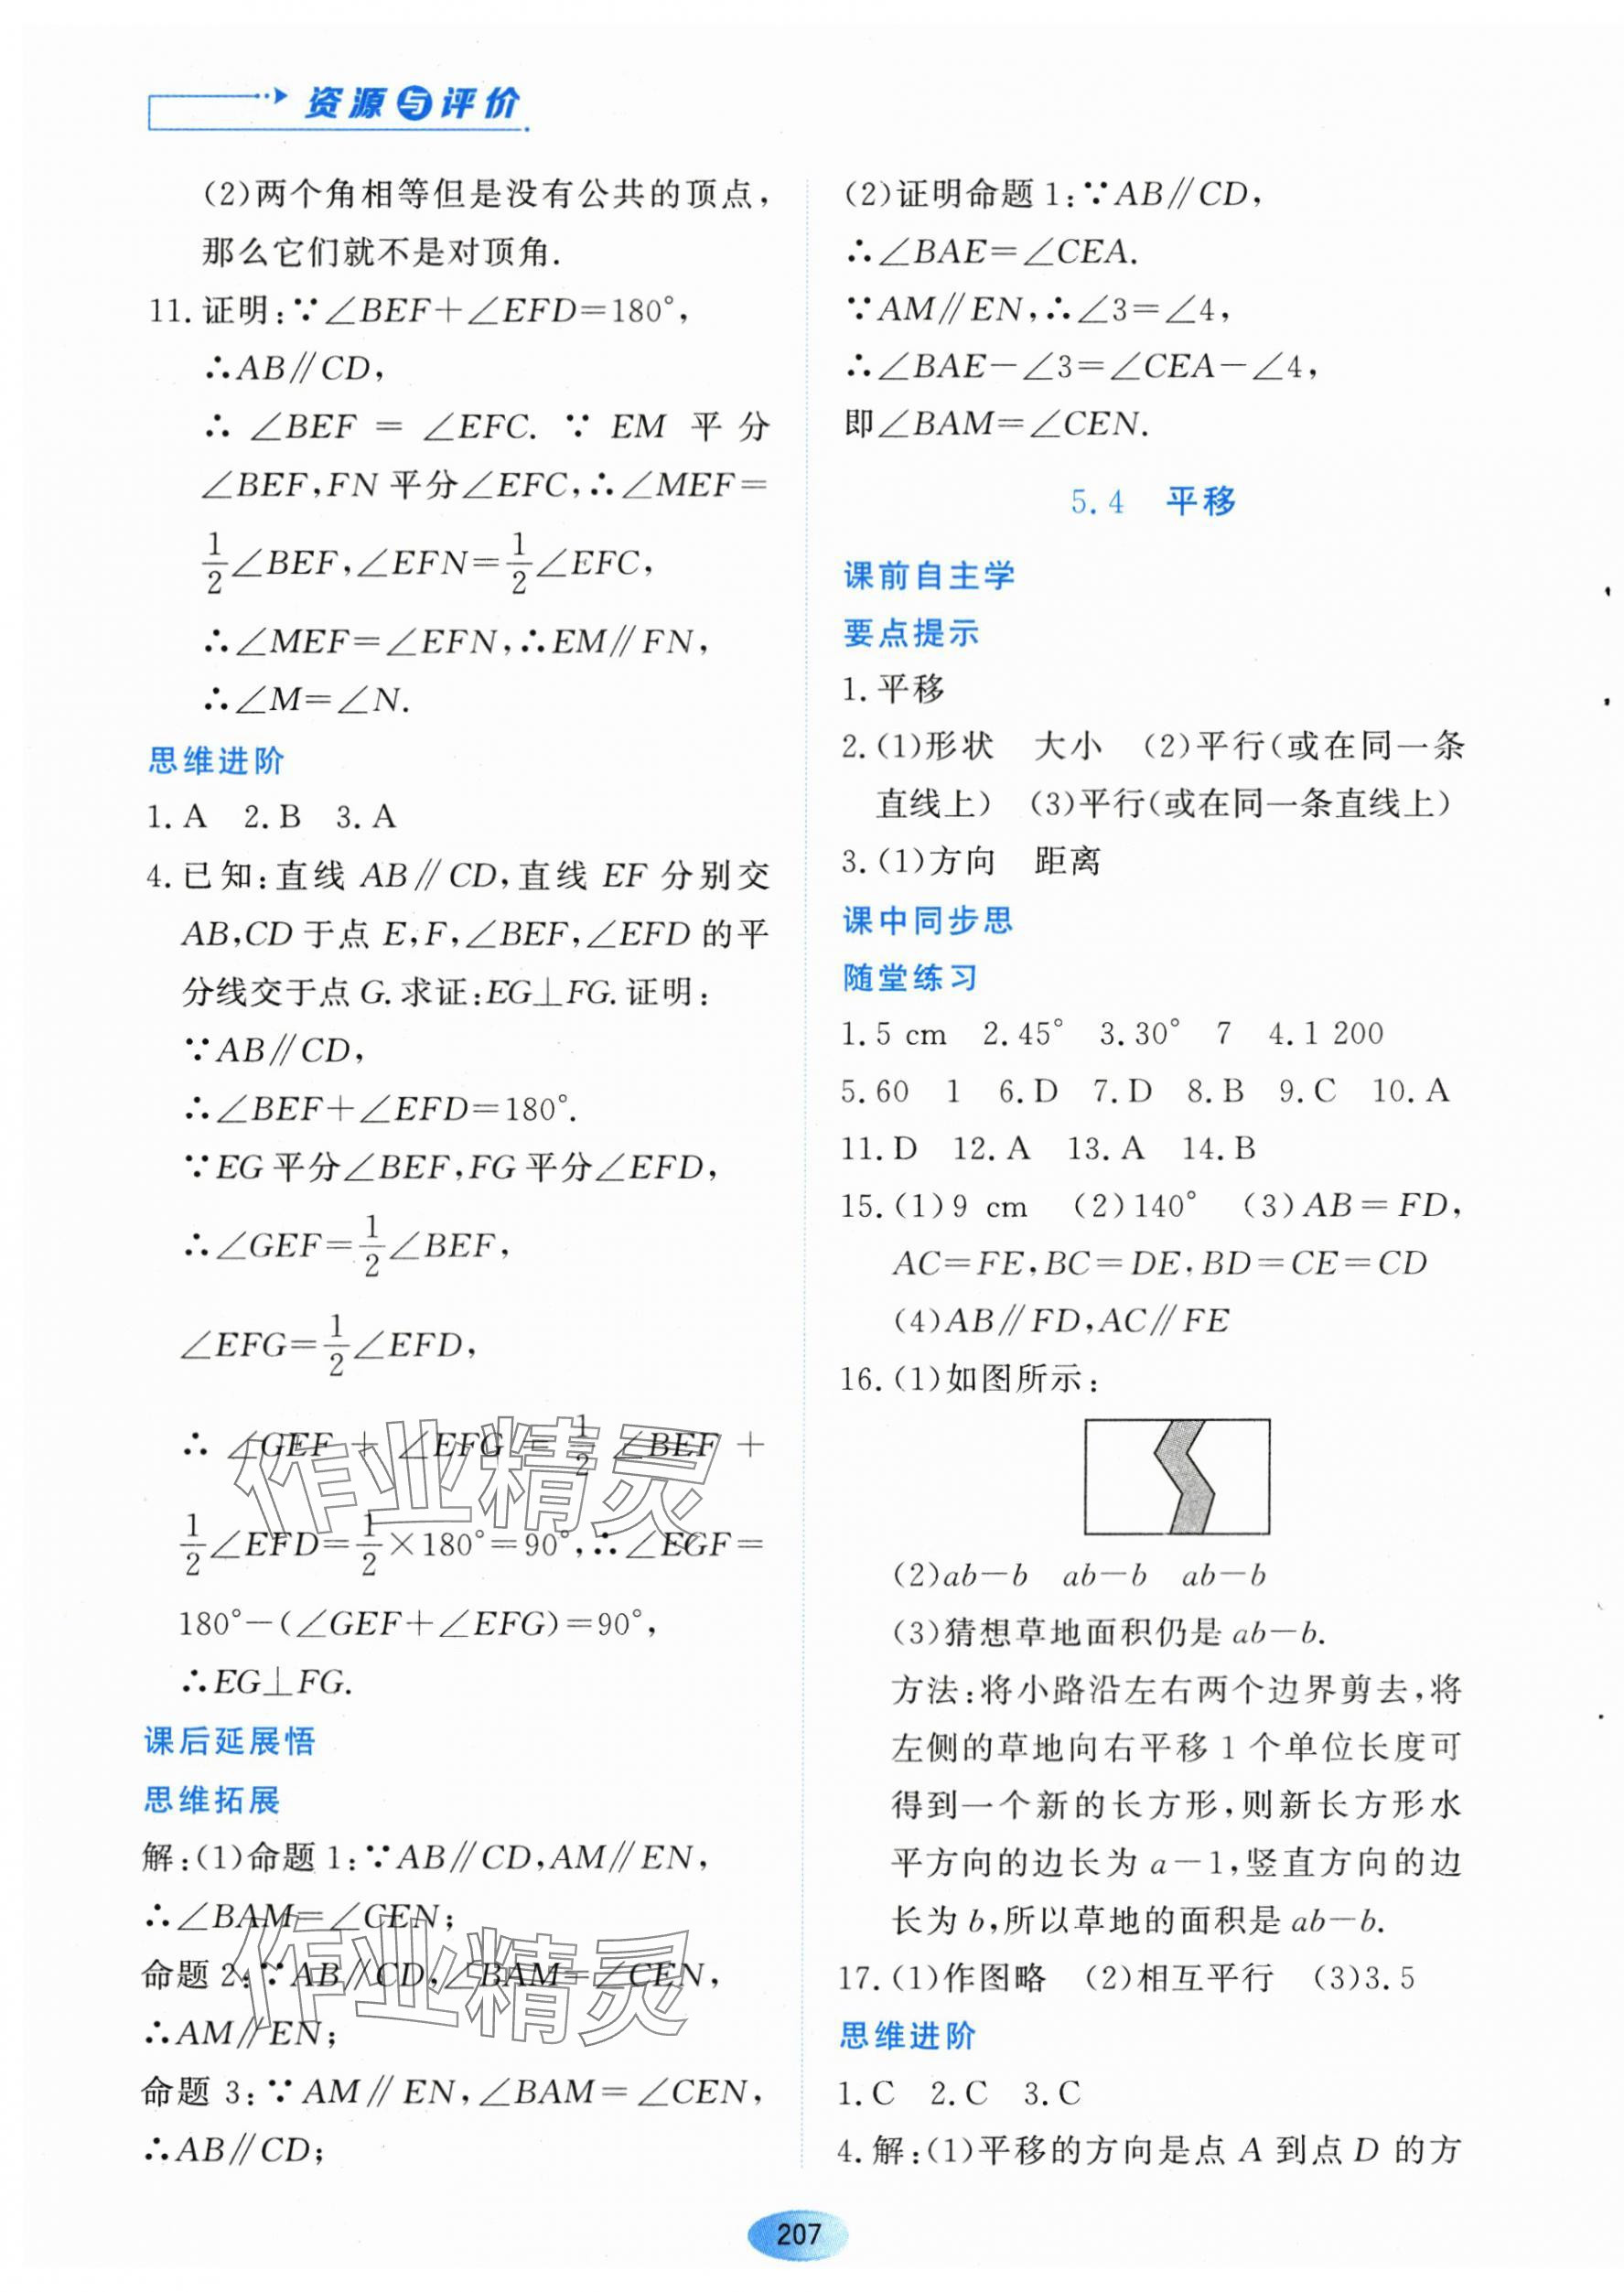 资源与评价
(2)两个角相等但是没有公共的顶点,
那么它们就不是对顶角.
11.证明:∵∠BEF+∠EFD=180°,
∴AB∥CD,
∴ ∠BEF = ∠EFC. ∵ EM 平分
∠BEF,FN平分∠EFC,∴∠MEF=
1/2∠BEF,∠EFN=1/2∠EFC,
∴∠MEF=∠EFN,∴EM∥FN,
∴∠M=∠N.
思维进阶
1.A 2.B 3.A
4.已知:直线 AB∥CD,直线 EF 分别交
AB,CD于点 E,F,∠BEF,∠EFD的平
分线交于点G.求证:EG⊥FG.证明:
∵AB∥CD,
∴∠BEF+∠EFD=180°.
∵EG平分∠BEF,FG平分∠EFD,
∴∠GEF=1/2∠BEF,
∠EFG=1/2∠EFD,
∴ ∠GEF + ∠EFG = 1/2 ∠BEF +
1/2∠EFD=1/2×180°=90°,∴∠EGF=
180°-(∠GEF+∠EFG)=90°,
∴EG⊥FG.
课后延展悟
思维拓展
解:(1)命题1:∵AB∥CD,AM∥EN,
∴∠BAM=∠CEN;
命题2:∵AB∥CD,∠BAM=∠CEN,
∴AM∥EN;
命题3:∵AM∥EN,∠BAM=∠CEN,
∴AB∥CD;
(2)证明命题1:∵AB∥CD,
∴∠BAE=∠CEA.
∵AM∥EN,∴∠3=∠4,
∴∠BAE-∠3=∠CEA-∠4,
即∠BAM=∠CEN.
5.4 平移
课前自主学
要点提示
1.平移
2.(1)形状 大小 (2)平行(或在同一条
直线上) (3)平行(或在同一条直线上)
3.(1)方向 距离
课中同步思
随堂练习
1.5 cm 2.45° 3.30° 7 4.1 200
5.60 1 6.D 7.D 8.B 9.C 10.A
11.D 12.A 13.A 14.B
15.(1)9 cm (2)140° (3)AB=FD,
AC=FE,BC=DE,BD=CE=CD
(4)AB∥FD,AC∥FE
16.(1)如图所示:
(2)ab-b ab-b ab-b
(3)猜想草地面积仍是ab-b.
方法:将小路沿左右两个边界剪去,将
左侧的草地向右平移1个单位长度可
得到一个新的长方形,则新长方形水
平方向的边长为a-1,竖直方向的边
长为b,所以草地的面积是ab-b.
17.(1)作图略 (2)相互平行 (3)3.5
思维进阶
1.C 2.C 3.C
4.解:(1)平移的方向是点A到点D的方
207
作业精灵
作业精灵